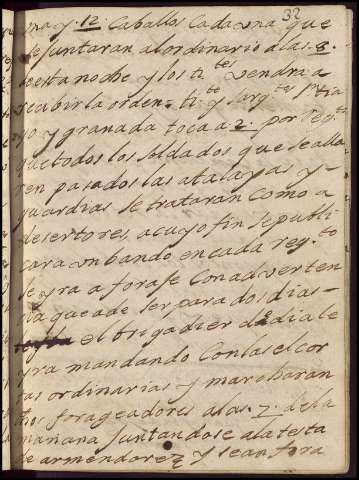 32
una y 12 Caballos Cada una que
se juntaran al ordinario a las 8
de esta noche y los ti.tes vendra a
recibir la orden ti.te y sarg.tes
yo y granada toca a 2 por Reg.to
que todos los soldados que se alla
ren pasados las atalayas y
guardias se trataran Como a
desertores, a cuyo fin se publi
cara un bando en cada reg.to
se yra a foraje Con adverten
cia que a de ser para dos dias
el brigadier de dia le
yra mandando Con las el cor
tas ordinarias y marcharan
dhos forageadores a las 7 de la
mañana Juntandose a la testa
de armendarez y sean fora